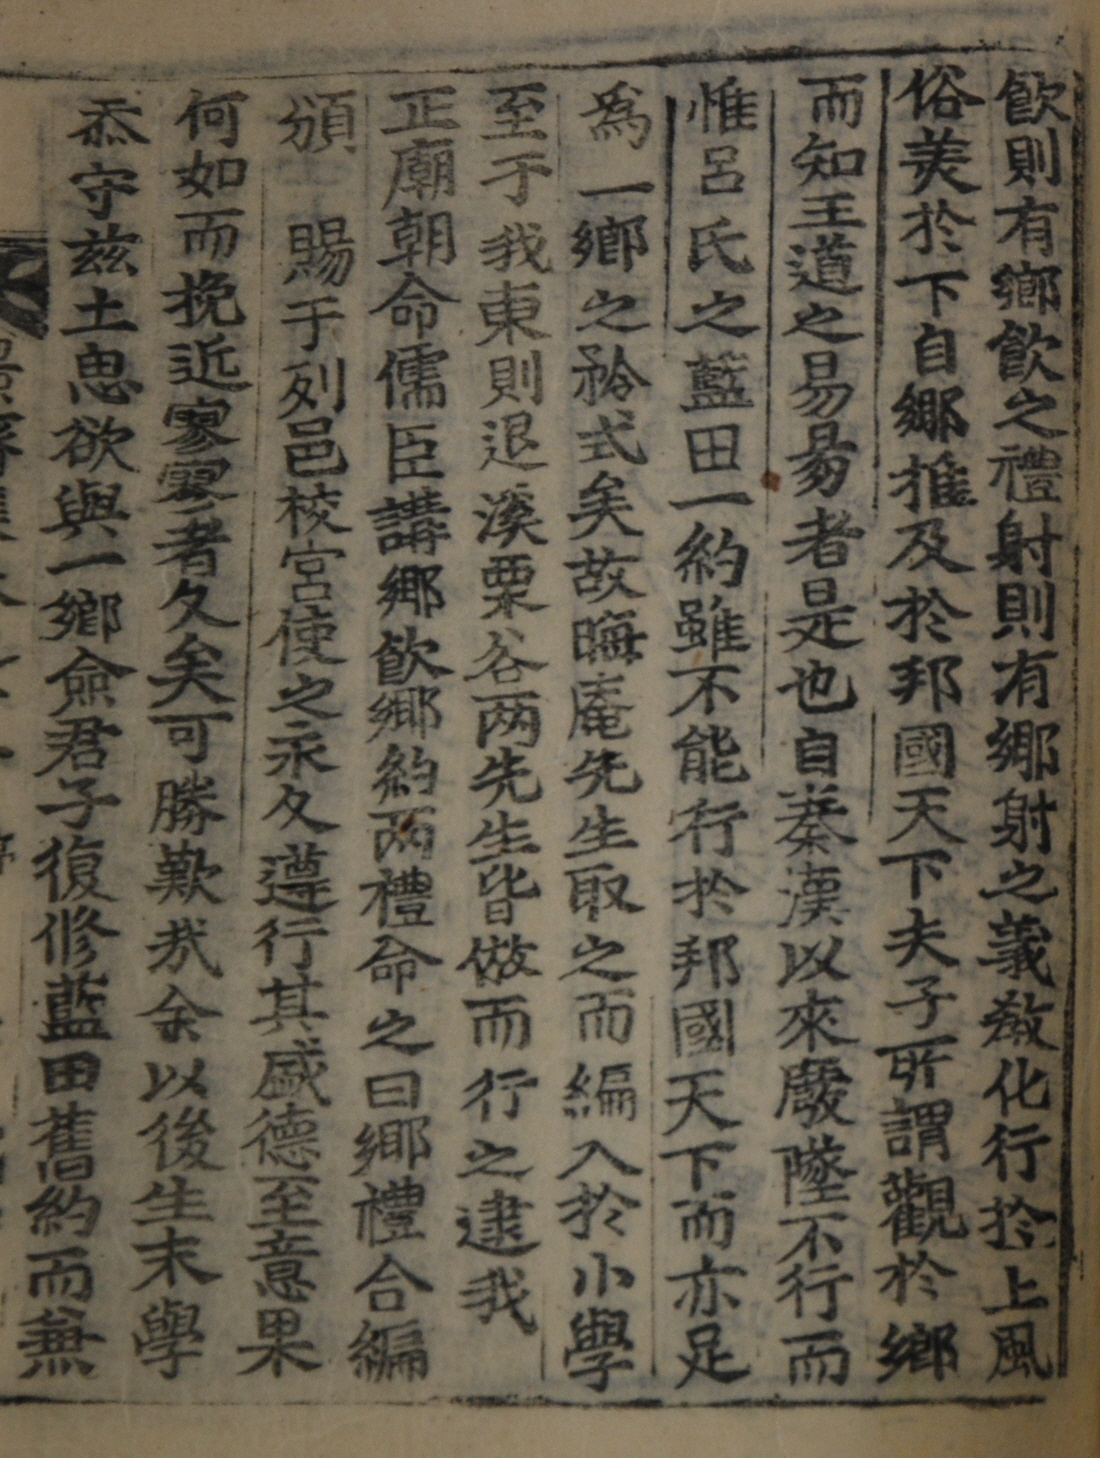 飮則有鄕飮之禮射則有鄕射之義敎化行於上風
俗美於下自鄕推及於邦國天下夫子所謂觀於鄕
而知王道之易易者是也自秦漢以來廢墜不行而
惟呂氏之藍田一約雖不能行於邦國天下而亦足
爲一鄕之矜式矣故晦庵先生取之而編入於小學
至于我東則退溪栗谷两先生皆倣而行之逮我
正廟朝命儒臣講鄕飮鄕約两禮命之曰鄕禮合編
頒賜于列邑校宮使之永久遵行其盛德至意果
何如而挽近寥寥者久矣可勝歎哉余以後生末學
忝守兹土思欲與一鄕僉君子復修藍田舊約而兼